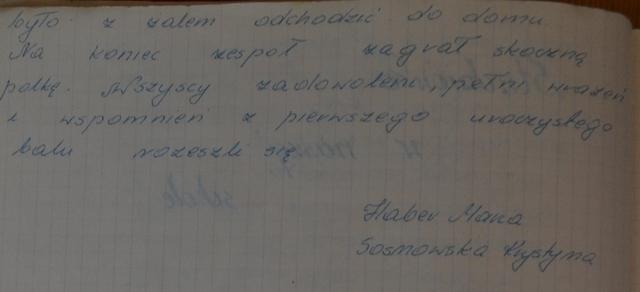 było z żalem odchodzić do domu
Na koniec zespół zagrał skoczną
polkę. Wszyscy zadowoleni, pełni wrażeń
i wspomnień z pierwszego uroczystego
balu rozeszli się
Haber Maria
Sosnowska Krystyna